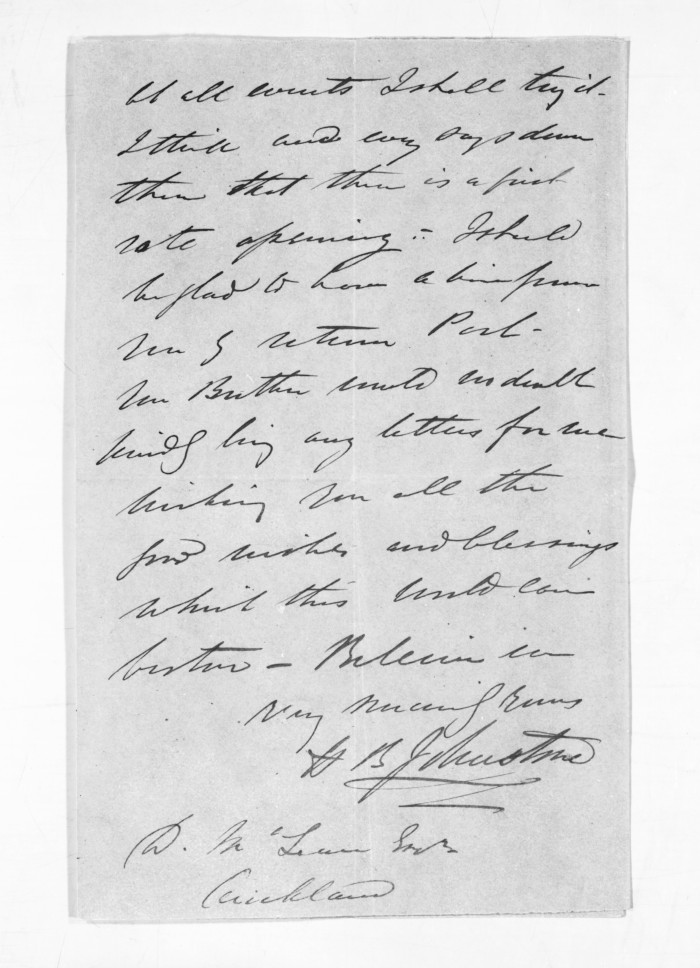 At all events I shall try it -
I think and every says down
there that there is a first
rate opening :- I should
be glad to have a line from
you by return Post -
You Brother would no doubt
kindly bring any letters for me
wishing you all the
good wishes and blessings
which this world can
bestow - Believe me
very sincerely yours
H B Johnstone
D. McLean Esqre
Auckland